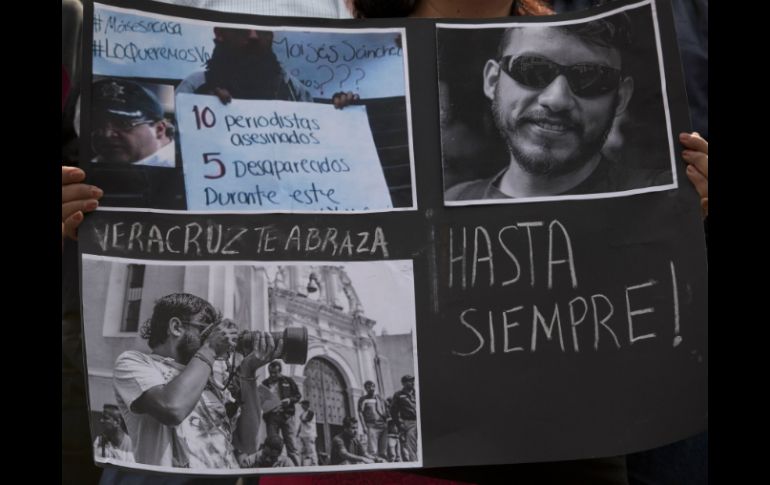 #Moisesacasa
#LoQueremosVi
Moisés Sánchez
???
10 periodistas
asesinados
5 Desaparecidos
Durante este
VERACRUZ TE ABRAZA
HASTA
SIEMPRE!